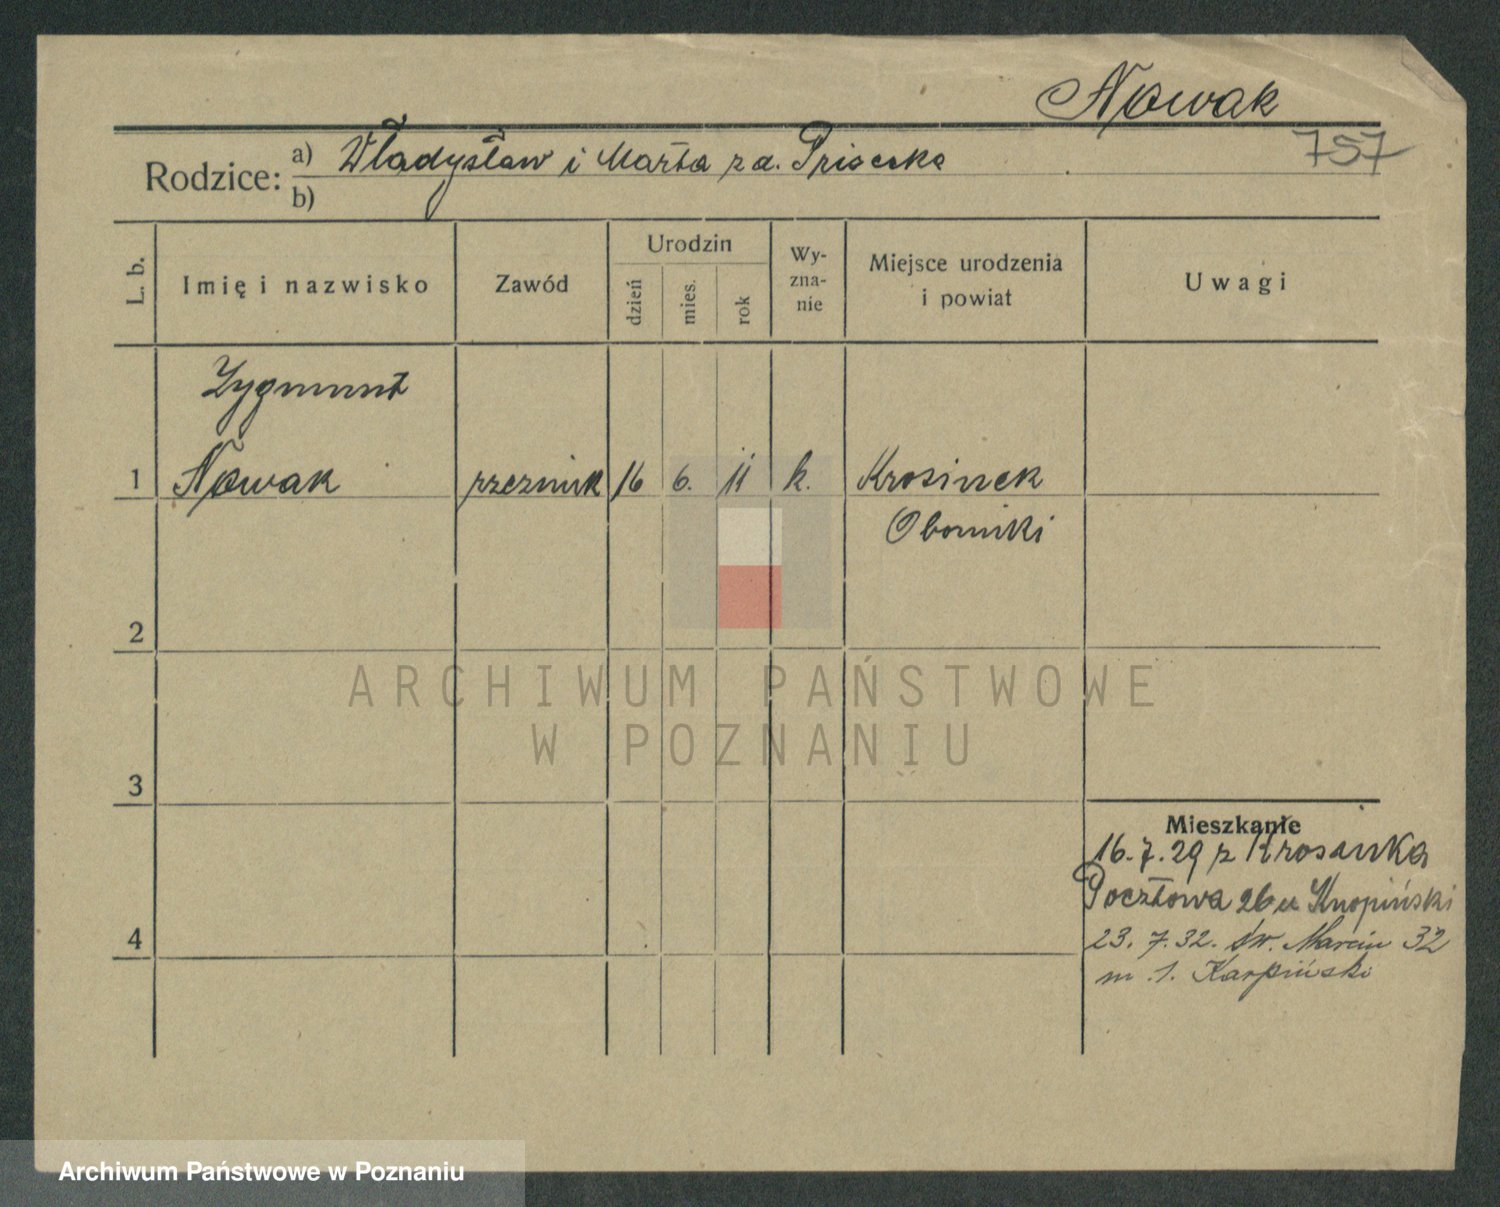 Nowak
757
Rodzice: a) Władysław i Marta z d. Prisecka
b)
L. b.
Imię i nazwisko
Zawód
Urodzin
dzień
mies.
rok
Wy-
zna-
nie
Miejsce urodzenia
i powiat
Uwagi
Zygmunt
1 Nowak rzeznik 16 6. 11 k. Krosinek
Oborniki
2
ARCHIWUM PAŃSTWOWE
W POZNANIU
3
Mieszkanie
16.7.29 z Krosinka
Pocztowa 26 u Knopiński
4
23.7.32. św. Marcin 32
m. 1. Karpiński
Archiwum Państwowe w Poznaniu